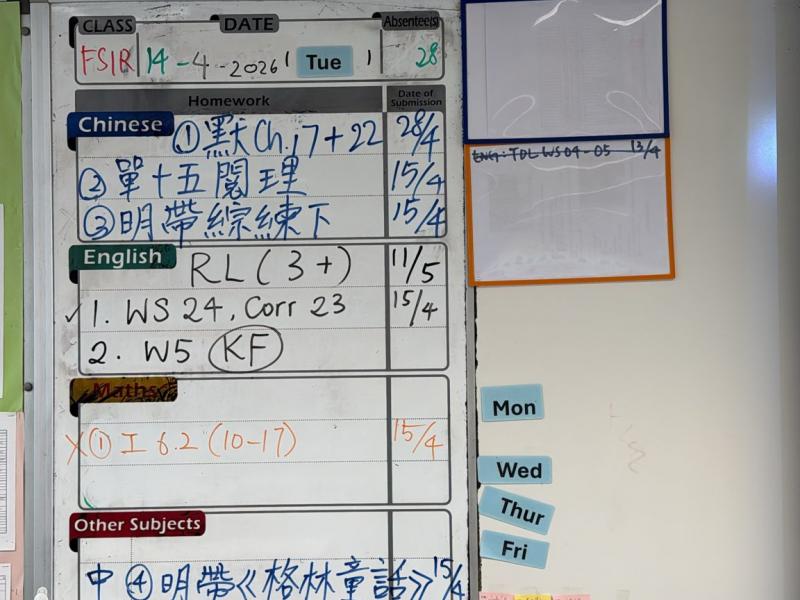 CLASS DATE Absentee(s)
FS1R 14-4-2026 ( Tue ) 28
Homework Date of Submission
Chinese ① 默 Ch.17+22 28/4
② 單十五閱理 15/4
③ 明帶綜練下 15/4
English RL (3+) 11/5
✓ 1. WS 24, Corr 23 15/4
2. W5 KF
Maths
X ① I 6.2 (10-17) 15/4
Other Subjects
中 ④ 明帶《格林童話》 15/4
ENG: TDL WS04-05 13/4
Mon
Wed
Thur
Fri